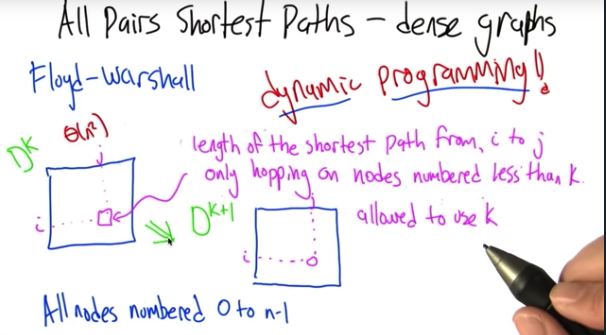 All Pairs Shortest Paths – dense graphs
Floyd-Warshall
dynamic programming!
Θ(n²)
D^k
length of the shortest path from i to j
only hopping on nodes numbered less than k.
i
D^k+1
allowed to use k
j
i
All nodes numbered 0 to n-1